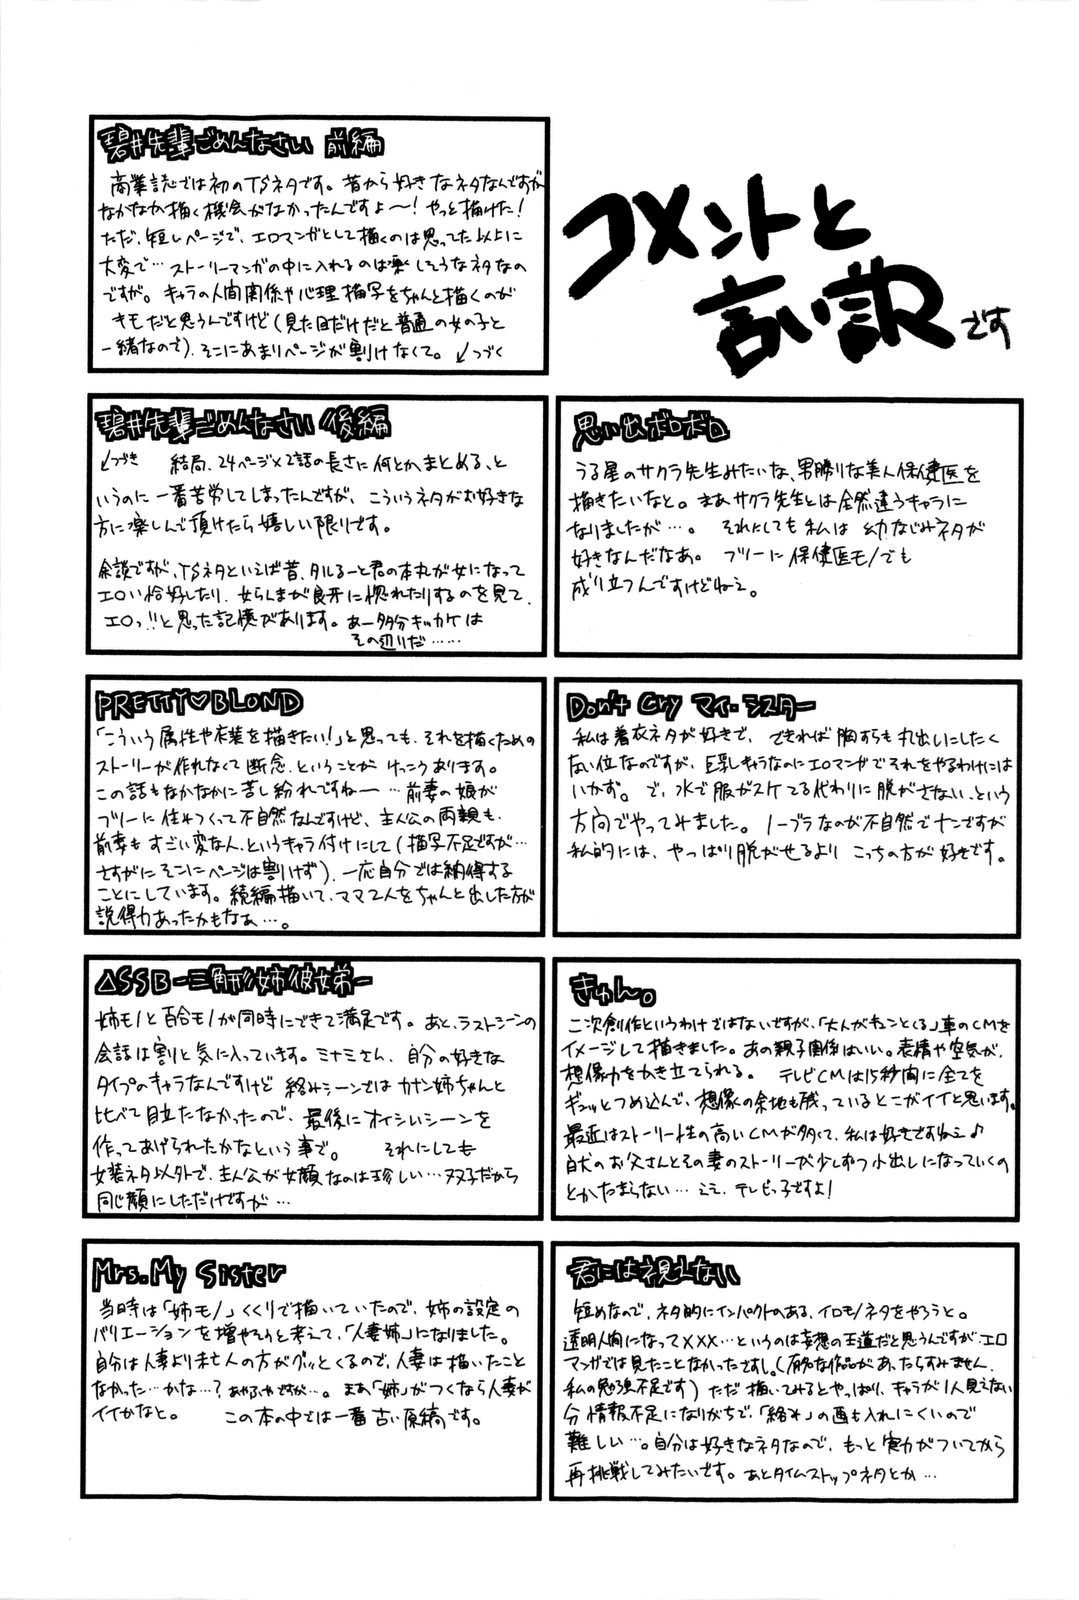 コメントと
言い訳です
碧井先輩ごめんなさい 前編
商業誌では初のTSネタです。昔から好きなネタなんですが
なかなか描く機会がなかったんですよ〜！やっと描けた！
ただ、短いページで、エロマンガとして描くのは思ってた以上に
大変で…ストーリーマンガの中に入れるのは楽しそうなネタなの
ですが。キャラの人間関係や心理描写をちゃんと描くのが
キモだと思うんですけど(見た目だけだと普通の女の子と
一緒なので)、そこにあまりページが割けなくて。↙つづく
碧井先輩ごめんなさい 後編
↙つづき 結局、24ページ×2話の長さに何とかまとめる、と
いうのに一番苦労してしまったんですが、こういうネタがお好きな
方に楽しんで頂けたら嬉しい限りです。
余談ですが、TSネタといえば昔、タルるート君の本丸が女になって
エロい恰好したり、女らんまが良牙に惚れたりするのを見て、
エロっ!!と思った記憶があります。あー多分キッカケは
その辺りだ……
思い出ボロボロ
うる星のサクラ先生みたいな、男勝りな美人保健医を
描きたいなと。まあサクラ先生とは全然違うキャラに
なりましたが…。それにしても私は幼なじみネタが
好きなんだなあ。フツーに保健医モノでも
成り立つんですけどねえ。
PRETTY♡BLOND
「こういう属性や衣装を描きたい！」と思っても、それを描くための
ストーリーが作れなくて断念、ということがけっこうあります。
この話もなかなかに苦し紛れですねー…前妻の娘が
フツーに住みついてて不自然なんですけど、主人公の両親も
前妻もすごい変な人、というキャラ付けにして(描写不足ですが…
さすがにそこにページは割けず)、一応自分では納得する
ことにしています。続編描いて、ママ2人をちゃんと出した方が
説得力あったかもなぁ…。
Don't Cry マイ・シスター
私は着衣ネタが好きで、できれば胸すらも丸出しにしたく
ない位なのですが、巨乳キャラなのにエロマンガでそれをやるわけには
いかず。で、水で服がスケてる代わりに脱がさない、という
方向でやってみました。ノーブラなのが不自然でナンですが
私的には、やっぱり脱がせるよりこっちの方が好きです。
△SSB-三角形姉彼弟-
姉モノと百合モノが同時にできて満足です。あと、ラストシーンの
会話は割と気に入っています。ミナミさん、自分の好きな
タイプのキャラなんですけど 絡みシーンではカナン姉ちゃんと
比べて目立たなかったので、最後にオイシいシーンを
作ってあげられたかなという事で。それにしても
女装ネタ以外で、主人公が女顔なのは珍しい…双子だから
同じ顔にしただけですが…
きゅん。
二次創作というわけではないですが、「大人がキュンとくる」車のCMを
イメージして描きました。あの親子関係はいい。表情や空気が、
想像力をかき立てられる。テレビCMは15秒間に全てを
ギュッとつめ込んで、想像の余地も残っているとこがイイと思います。
最近はストーリー性の高いCMが多くて、私は好きですねえ♪
白犬のお父さんとその妻のストーリーが少しずつ小出しになっていくの
とかたまらない…ええ、テレビっ子ですよ！
Mrs. My Sister
当時は「姉モノ」くくりで描いていたので、姉の設定の
バリエーションを増やそうと考えて、「人妻姉」になりました。
自分は人妻より未亡人の方がグッとくるので、人妻は描いたこと
なかった…かな…？あやふやですが…。まあ「姉」がつくなら人妻が
イイかなと。 この本の中では一番古い原稿です。
君には視えない
短めなので、ネタ的にインパクトのある、イロモノネタをやろうと。
透明人間になって×××…というのは妄想の王道だと思うんですが、エロ
マンガでは見たことなかったですし。(有名な作品があったらすみません、
私の勉強不足です) ただ描いてみるとやっぱり、キャラが1人見えない
分情報不足になりがちで、「絡み」の画も入れにくいので
難しい…。自分は好きなネタなので、もっと実力がついてから
再挑戦してみたいです。あとタイムストップネタとか…